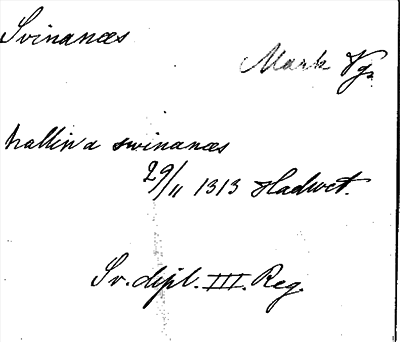 Svinanæs
Mark Vg.
hallin a swinanæs
29/11 1313
Sv. dipl. III. Reg.